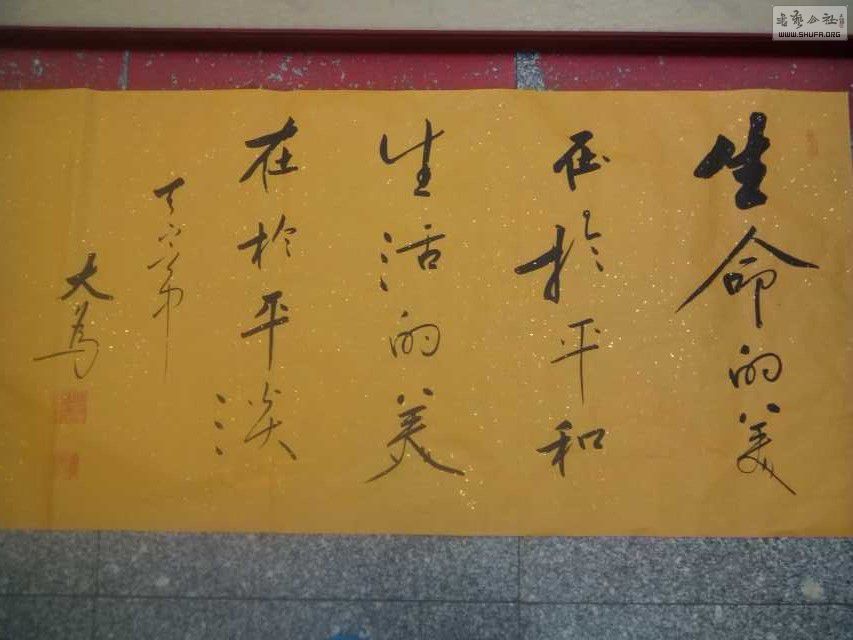 生命的美
在於平和
生活的美
在於平淡
大为
书艺公社
WWW.SHUFA.ORG